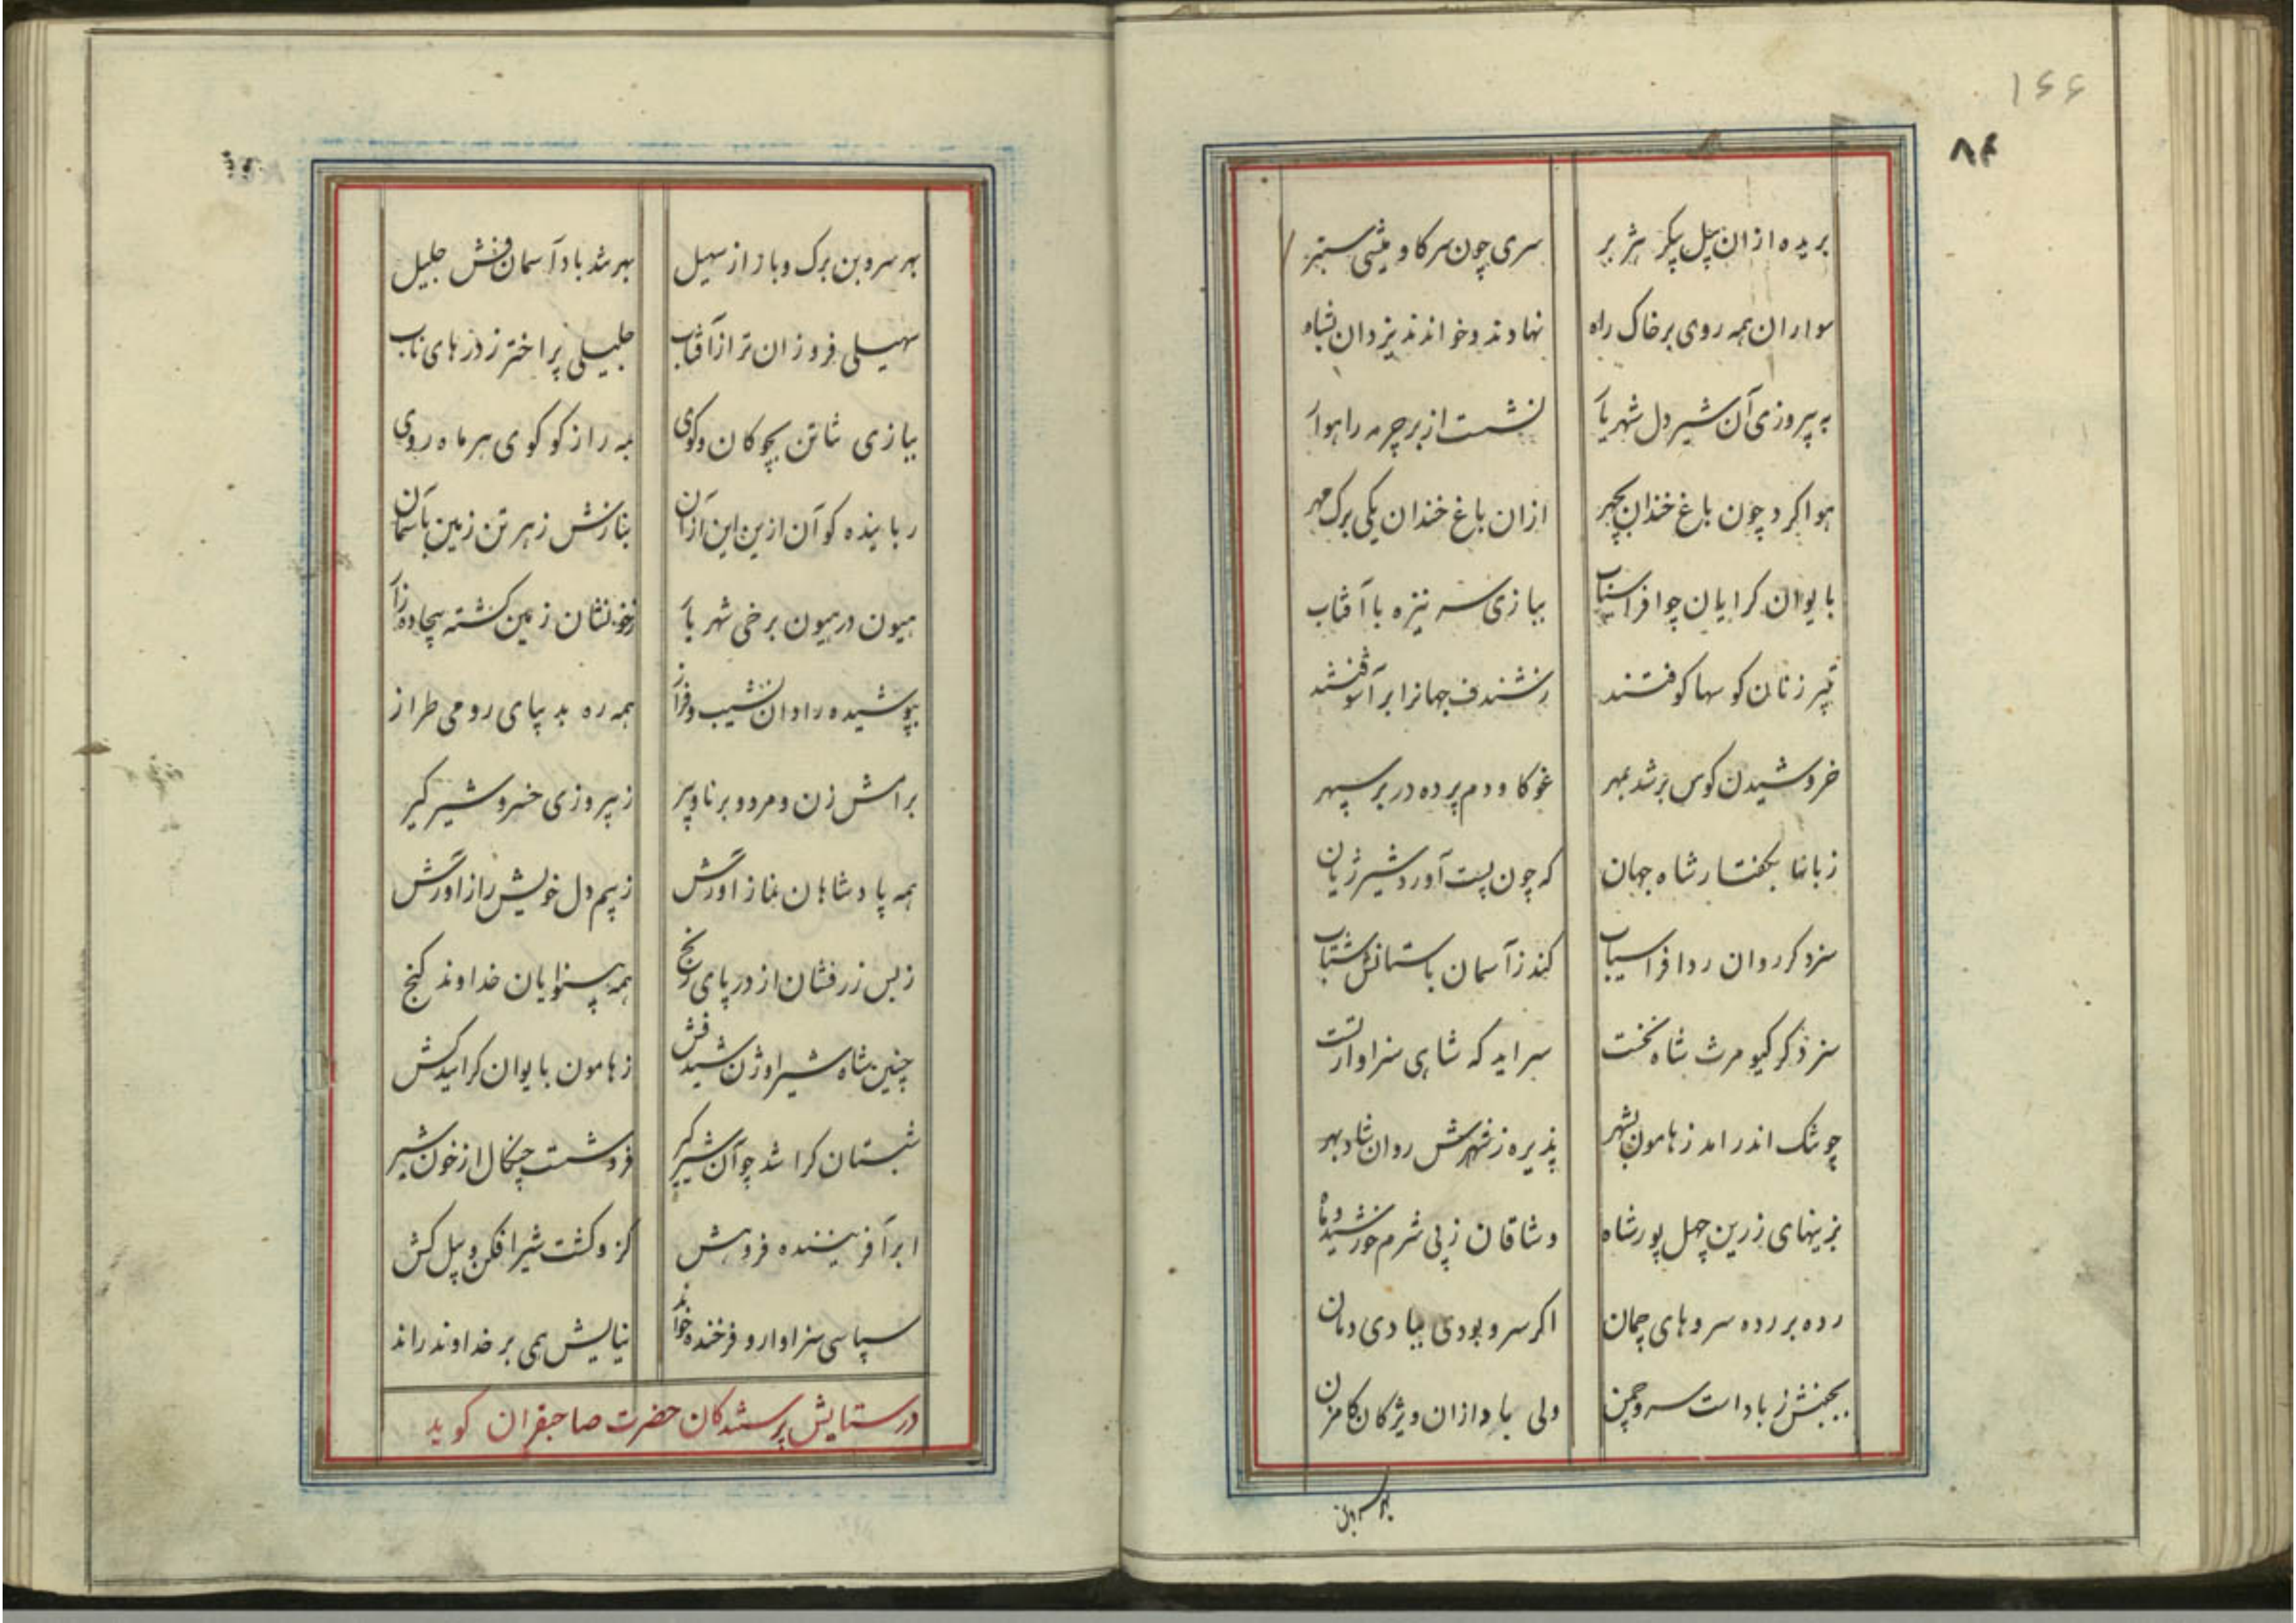 ۱۶۶
۸۴
بریده ازان پیل پیکر هژبر سری چون سر کاو میشی ستبر
سواران همه روی بر خاک راه نهادند و خواندند یزدان بشاه
به پیروزی آن شیر دل شهریار نشست از بر چرمه راهوار
هوا کرد چون باغ خندان بچهر ازان باغ خندان یکی برک مهر
بایوان کرایان چو افراسیاب ببازی سر نیزه با آفتاب
تبیر زنان کوسها کوفتند جهانرا بر آشوفتند
خروشیدن کوس بر شد بمهر غو کاودم پرده در بر سپهر
زبانها بکفتار شاه جهان که چون پست آورد شیر ژیان
سزد کر روان رد افراسیاب کند ز آسمان باستانش شتاب
سزد کر کیومرث شاه نخست سراید که شاهی سزاوار تست
چو تنک اندر امد ز هامون بشهر پذیره ز شهرش روان شاد بهر
بزینهای زرین چهل پور شاه وشاقان زپی شرم خورشید و ماه
رده بر رده سروهای چمان اکر سرو بودی بیادی دمان
بجنبش ز باد است سرو چمن ولی باد ازان ویژکان کامزن
بهر سروبن
بهر سروبن برک و باز از سهیل بهر شد باد آسمان فش جلیل
سهیلی فروزان تر از آفتاب جلیلی پر اختر ز درهای ناب
ببازی شاتن بچوکان و کوی بمه راز کو کوی هر ماه روی
رباینده کو آن ازین این ازآن بنازش ز هر تن زمین بآسمان
هیون در هیون برخی شهریار ز خونشان زمین کشته بیجاده زار
بپوشیده رادان نشیب و فراز همه ره بدیبای رومی طراز
برامش زن و مرد و برنا و پیر ز پیروزی خسرو شیر کیر
همه پادشاهان نماز آورش ز بیم دل خویش راز آورش
ز بس زر فشان از در پای رنج همه بینوایان خداوند کنج
چنین شاه شیر اوژن شید فش ز هامون بایوان کرائید کش
شبستان کرا شد چو آن شیر کیر فرو شست چنکال از خون شیر
ابر آفریننده فر و هش کزو کشت شیر افکن و پیل کش
سپاسی سزاوار و فرخنده خواند نیایش همی بر خداوند راند
در ستایش پرستندکان حضرت صاحبقران کوید